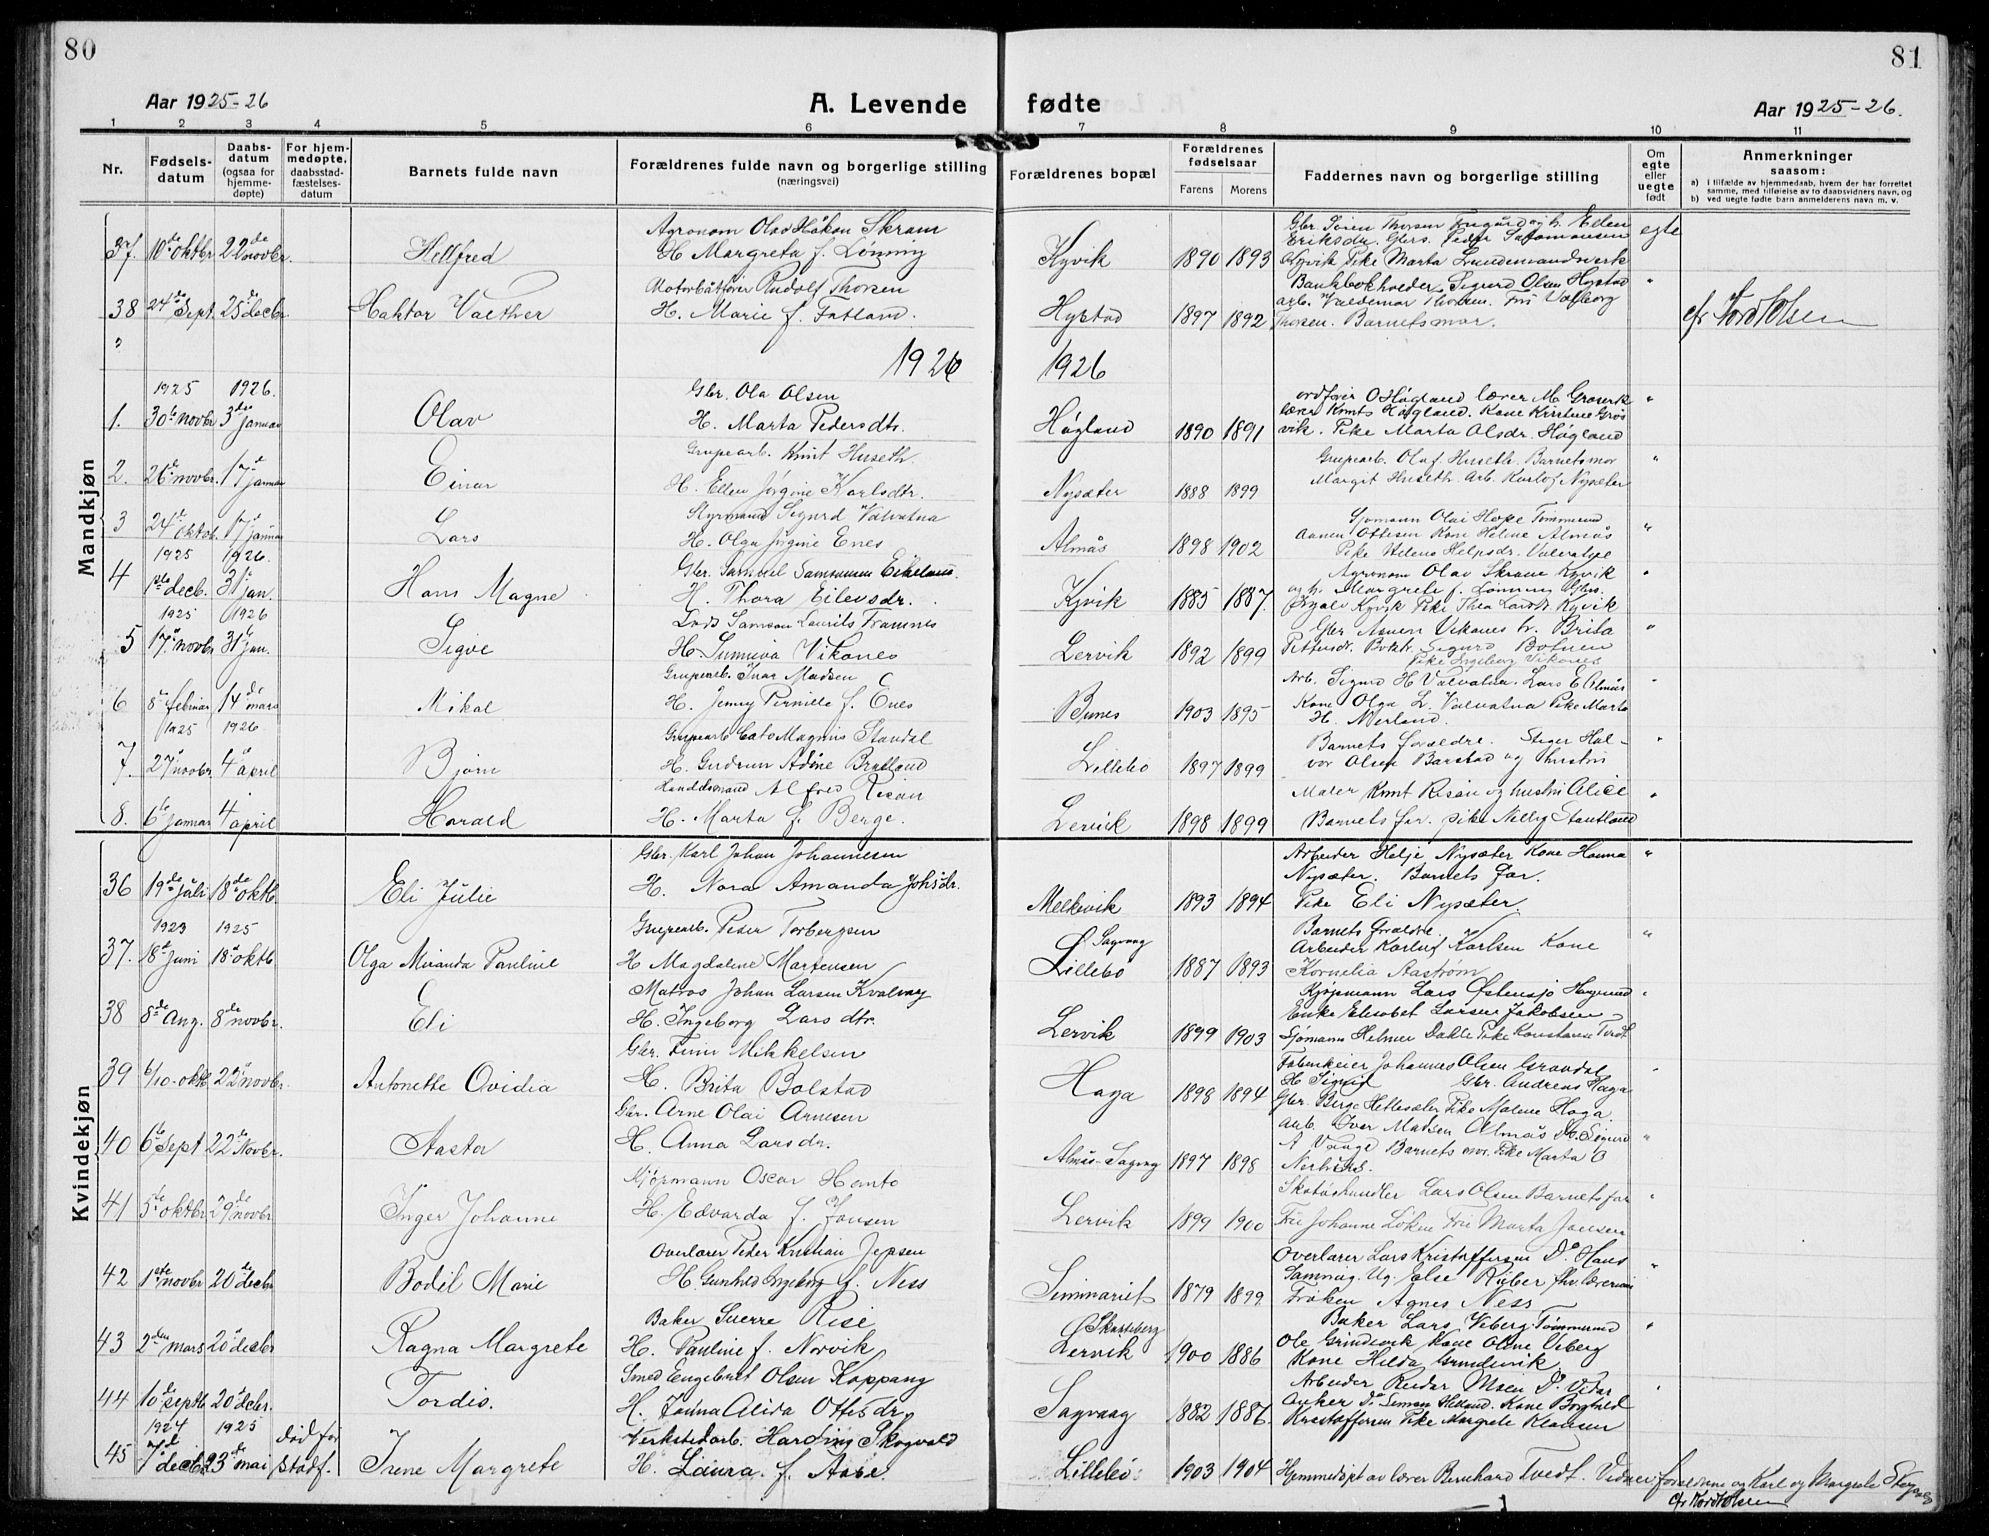 80
81
Aar 1925-26
A. Levende fødte
Aar 1925-26.
1 2 3 4 5 6 7 8 9 10 11
Nr.
Fødsels-
datum
Daabs-
datum
(ogsaa for
hjemme-
døpte)
For hjem-
medøpte,
daabsstad-
fæstelses-
datum
Barnets fulde navn
Forældrenes fulde navn og borgerlige stilling
(næringsvei)
Forældrenes bopæl
Forældrenes
fødselsaar
Farens Morens
Faddernes navn og borgerlige stilling
Om
egte
eller
uegte
født
Anmerkninger
saasom:
a) I tilfælde av hjemmedaab, hvem der har forrettet
samme, med tilføielse av to daabsvidners navn, og
b) ved uegte fødte barn anmelderens navn m. v.
Mandkjøn
37. 10de oktbr 22de novbr. Hellfred
Agronom Olav Håkon Skram
H. Margreta f. Lønning
Kyvik 1890 1893
Eriksdr. Peder Salomonsen
Kyvik Pike Marta
egte
38 24de Sept. 25de decbr
Motorbåtfører Rudolf Thorsen
H. Marie f. Fatland.
Hystad 1897 1892
Bankbokholder Sigurd Olsen Hystad
arb. Valdemar Thorsen. Fru Valborg
Thorsen. Barnets mor.
1926 1926
1925 1926
1. 30te novbr 3die januar Olav
Gbr. Ola Olsen
H. Marta Pedersdtr.
Høgland 1890 1891
ordfører O Høgland lærer M.
lærer Knut Høgland. Kone Kristine Grøs
vik. Pike Marta Olsdr. Høgland
2. 26de novbr. 17de januar Einar
Grupearb. Knut Huseth.
H. Ellen Jørgine Karlsdtr.
Nysæter 1888 1899
Grupearb. Olaf Huseth. Barnets mor
Margit Huseth. Arb. Karlof Nysæter
3 24de oktob. 17de januar Lars
Styrmand Sigurd Valvatna
H. Olga Jørgine Enes
Almås 1898 1902
Sjømann Olai Hope Tømmermd
Aanen Ottesen Kone Heline Almås
1925 1926
4 1ste decb. 31te jan. Hans Magne
Gbr. Samuel Samsonsen Eikeland.
H. Thora Eilevsdr.
Kyvik 1885 1887.
Agronom Olav Skram Kyvik
og h. Margrete f. Lønning
1925 1926
5 17de novbr 31te jan. Sigve
Lods Samson Laurits Tramnes
H. Sunniva Vikanes
Lervik 1892 1899
Gbr Aanen Vikanes h. Brita
Pettersdr. Sigurd
Pike Ingeborg Vikanes
6 8de februar 14de mars Mikal
Gruparb. Ivar Madsen
H. Jenny Pernille f. Enes
Bunes 1903 1895
Arb. Sigurd H Valvatna. Lars E Almås
Kone Olga L. Valvatna Pike Marta
H. Nerland.
1925 1926
7. 27de novbr. 4de april Bjørn
Gruparb Cato Magnus Standal
H. Gudrun Adine Bratland
Lillebø 1897 1899
Barnets forældre. Stiger Hal-
vor Olsen Barstad og hustru
8. 6te januar 4de april Harald
Handelsmand Alfred Risan
H. Marta f. Berge.
Lervik 1898 1899
Maler Knut Risan og hustru Alice
Barnets far. pike Nelly
Kvindekjøn
36 19de juli 18de oktb. Eli Julie
Gbr. Karl Johan Johannesen
H. Nora Amanda Johsdr.
Melkevik 1893 1894
Arbeider Helje Nysæter Kone Hanna
Nysæter. Barnets far.
Pike Eli Nysæter.
1923 1925
37. 18de juni 18de oktb Olga Miranda Pauline
Gruparb. Peder Torbergsen
H Magdalene Martensen
Sagvaag
Lillebø 1887 1893
Barnets forældre.
Arbeider Karluf Karlsen Kone
Kornelia Aastrøm
38 8de Aug. 8de novbr. Eli
Matros Johan Larsen Kvalvaag
H. Ingeborg Larsdtr.
Lervik 1899 1903
Kjøpmann Lars Østensjø Haugesund
Enke Elisabet Larsen Jakobsen
Sjømann Helmer Dahle Pike Konstanse Tvedt
39 6/10. oktb 22de novbr. Antonette Ovidia
Gbr. Finn Mikkelsen
H. Brita Bolstad
Haga 1898 1894
Fabrikeier Johannes Olsen
H. Sigrid Gbr. Andreas Haga
Gbr. Berge Hettesæter Pike Malene Haga
40 6te Sept 22de Novbr. Aasta
Gbr. Arne Olai Arnesen
H. Anna Larsdr.
Almås-Sagvåg 1897 1898
Arb. Iver Madsen Almås Do. Sigurd
A Vaage Barnets mor. Pike Marta O
41 5te oktbr 29de novbr. Inger Johanne
Kjøpmann Oscar Hanto
H. Edvarda f. Jansen
Lervik 1899 1900
Skotøihandler Lars Olsen Barnets far
Fru Johanne Løkne Fru Marta Jansen
42 1ste novbr 20de decbr Bodil Marie
Overlærer Peder Kristian Jepsen
H. Gunhild Ingeborg f. Ness
Seminariet 1879 1899.
Overlærer Lars Kristoffersen Do Hans
Frøken Agnes Ness
43 2den mars 20de decbr Ragna Margrete
Baker Sverre Risé
H. Pauline f. Norvik
Skarteberg
Lervik 1900 1886
Baker Lars Veberg Tømmermd
Ole Grindevik Kone Oline Veberg
Kone Hilda Grindevik
44 10de septb 20de decbr. Tordis.
Smed Engebret Olsen Koppang
H. Janna Alida Ottesdr.
Sagvaag 1882 1886.
Arbeider Reidar Moen Do. Vidar
Anker Do Simon Helland. Kone Borghild
Kristoffersen Pike Margrete Klausen
1924 1925
45 7de decb. 23de mai død før stadf. Irene Margrete
Verkstedarb. Harding Skogvold
H. Laura f. Aase
Lillebø 1903 1904
Hjemmedøpt av lærer Bernhard Tvedt. Vidner forældrene og Karl og Margrete